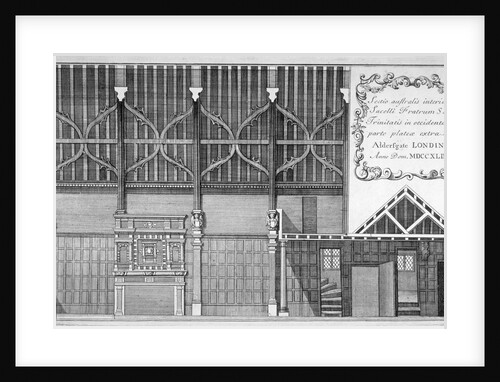 Sectio australis interi
Sacelli Fratrum S.
Trinitatis in occidente
parte plateæ extra
Aldersgate LONDIN
Anno Dom. MDCCXLI